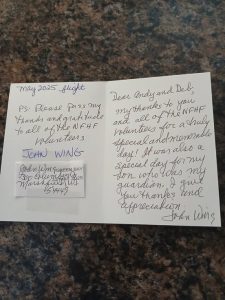 May 2025 flight
PS: Please pass my
thanks and gratitude
to all of the NFHF
Volunteers
JOHN WING
John Wing
Marshfield, WI
54449
Dear Andy and Deb,
my thanks to you
and all of the NFHF
volunteers for a truly
special and memorable
day! It was also a
special day for my
son who was my
guardian. I give
my thanks and
appreciation.
John Wing